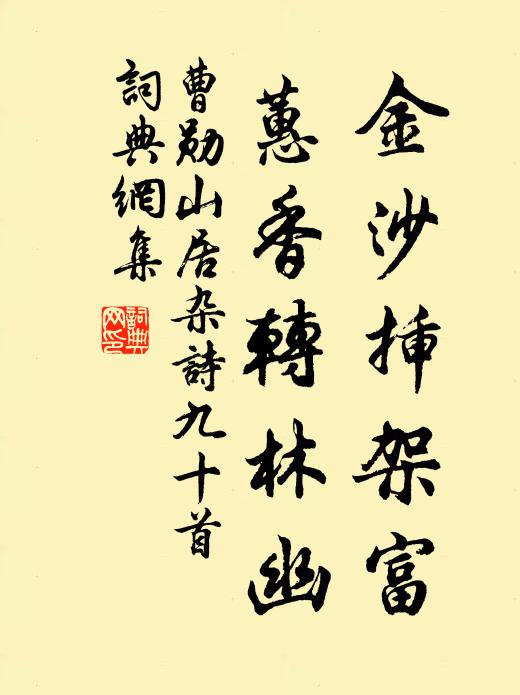 金沙揷架富
蕙香轉林幽
曹勛山居杂詩九十首
詞典網集
詞典网印